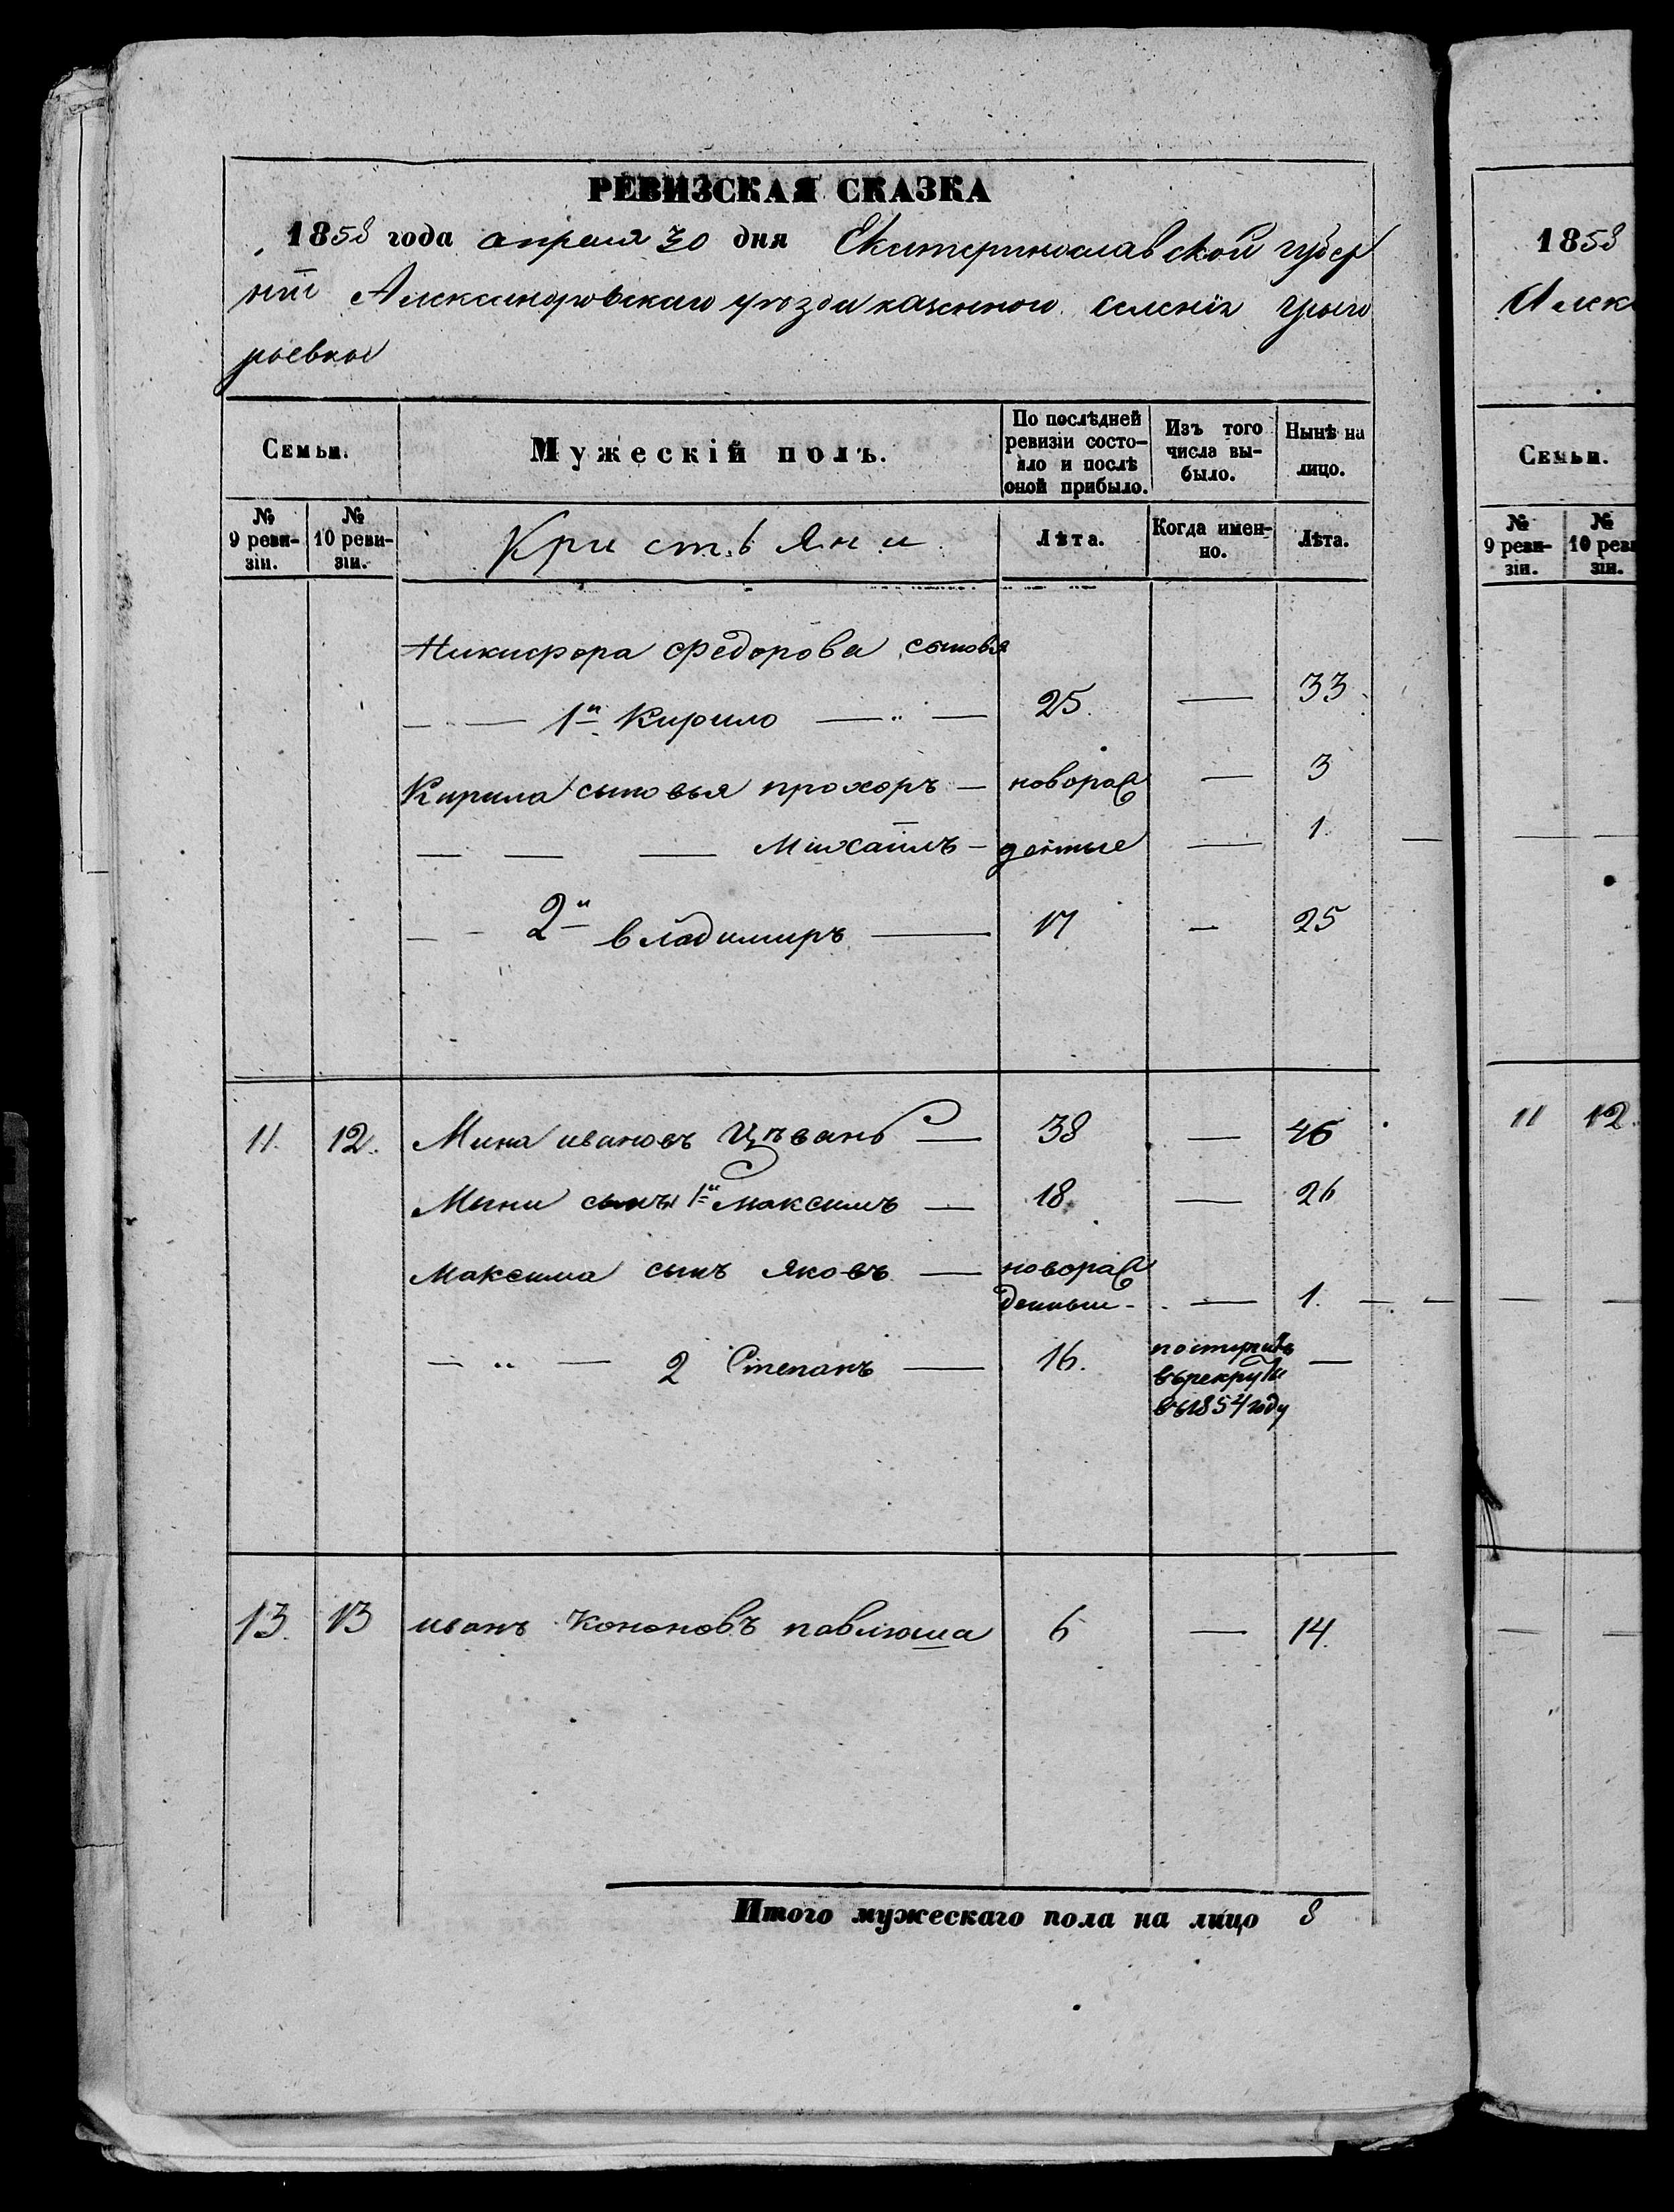 РЕВИЗСКАЯ СКАЗКА
1858 года апреля 30 дня Екатеринославской губер
нiи Александровскаго уезда казенного селенiя Грыго
рьевки
Семьи.
Мужескiй полъ.
По послѣдней
ревизiи состо-
яло и послѣ
оной прибыло.
Изъ того
числа вы-
было.
Нынѣ на
лицо.
№
9 реви-
зiи.
№
10 реви-
зiи.
Кристьяни
Лѣта.
Когда имен-
но.
Лѣта.
Никифора Федорова сыновья
1й Кирило — 25 — 33
Кирила сыновья прохоръ — новораж — 3
Михаилъ — денные — 1
2й владимиръ — 17 — 25
11. 12. Мина ивановъ Цѣвань — 38 — 46
Мини сынъ 1й Максимъ — 18 — 26
Максима сынъ Яковъ — новораж
денный — 1.
2 Степанъ — 16. поступилъ —
въ рекруты
въ 1854 году
13. 13 иванъ Кононовъ павлюша 6 — 14.
Итого мужескаго пола на лицо 8
1858
Алек
Семьи.
№
9 реви-
зiи.
№
10 реви
зiи.
11 12.